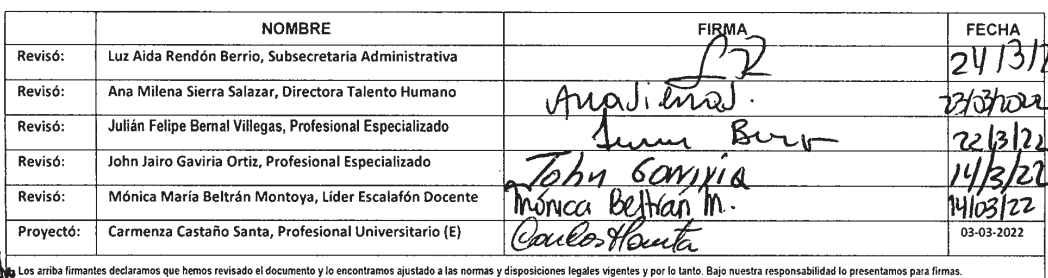 NOMBRE FIRMA FECHA
Revisó: Luz Aida Rendón Berrio, Subsecretaria Administrativa 24/3/2
Revisó: Ana Milena Sierra Salazar, Directora Talento Humano 23/03/2022
Revisó: Julián Felipe Bernal Villegas, Profesional Especializado 22/3/22
Revisó: John Jairo Gaviria Ortiz, Profesional Especializado John Gaviria 14/3/22
Revisó: Mónica María Beltrán Montoya, Líder Escalafón Docente Mónica Beltrán M. 14/03/22
Proyectó: Carmenza Castaño Santa, Profesional Universitario (E) 03-03-2022
Los arriba firmantes declaramos que hemos revisado el documento y lo encontramos ajustado a las normas y disposiciones legales vigentes y por lo tanto. Bajo nuestra responsabilidad lo presentamos para firmas.